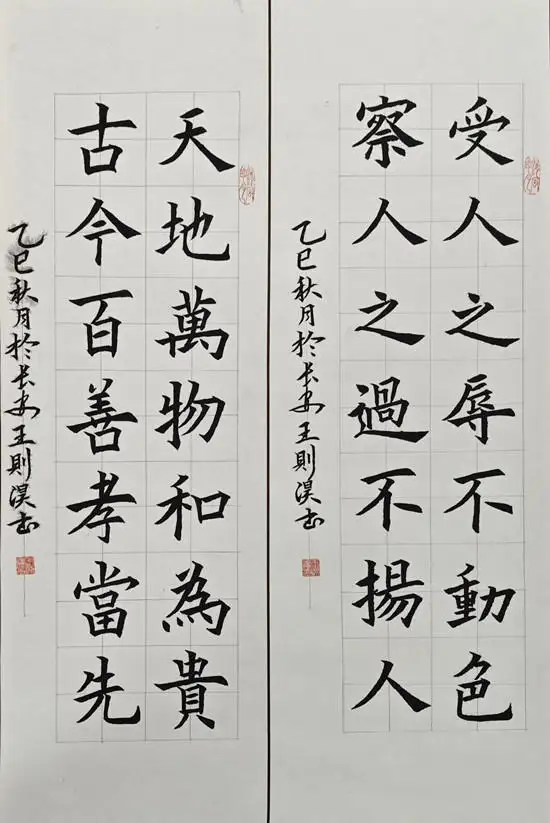 受人之辱不動色
察人之過不揚人
乙巳秋月於长安王則淏书
天地萬物和為貴
古今百善孝當先
乙巳秋月於长安王則淏书